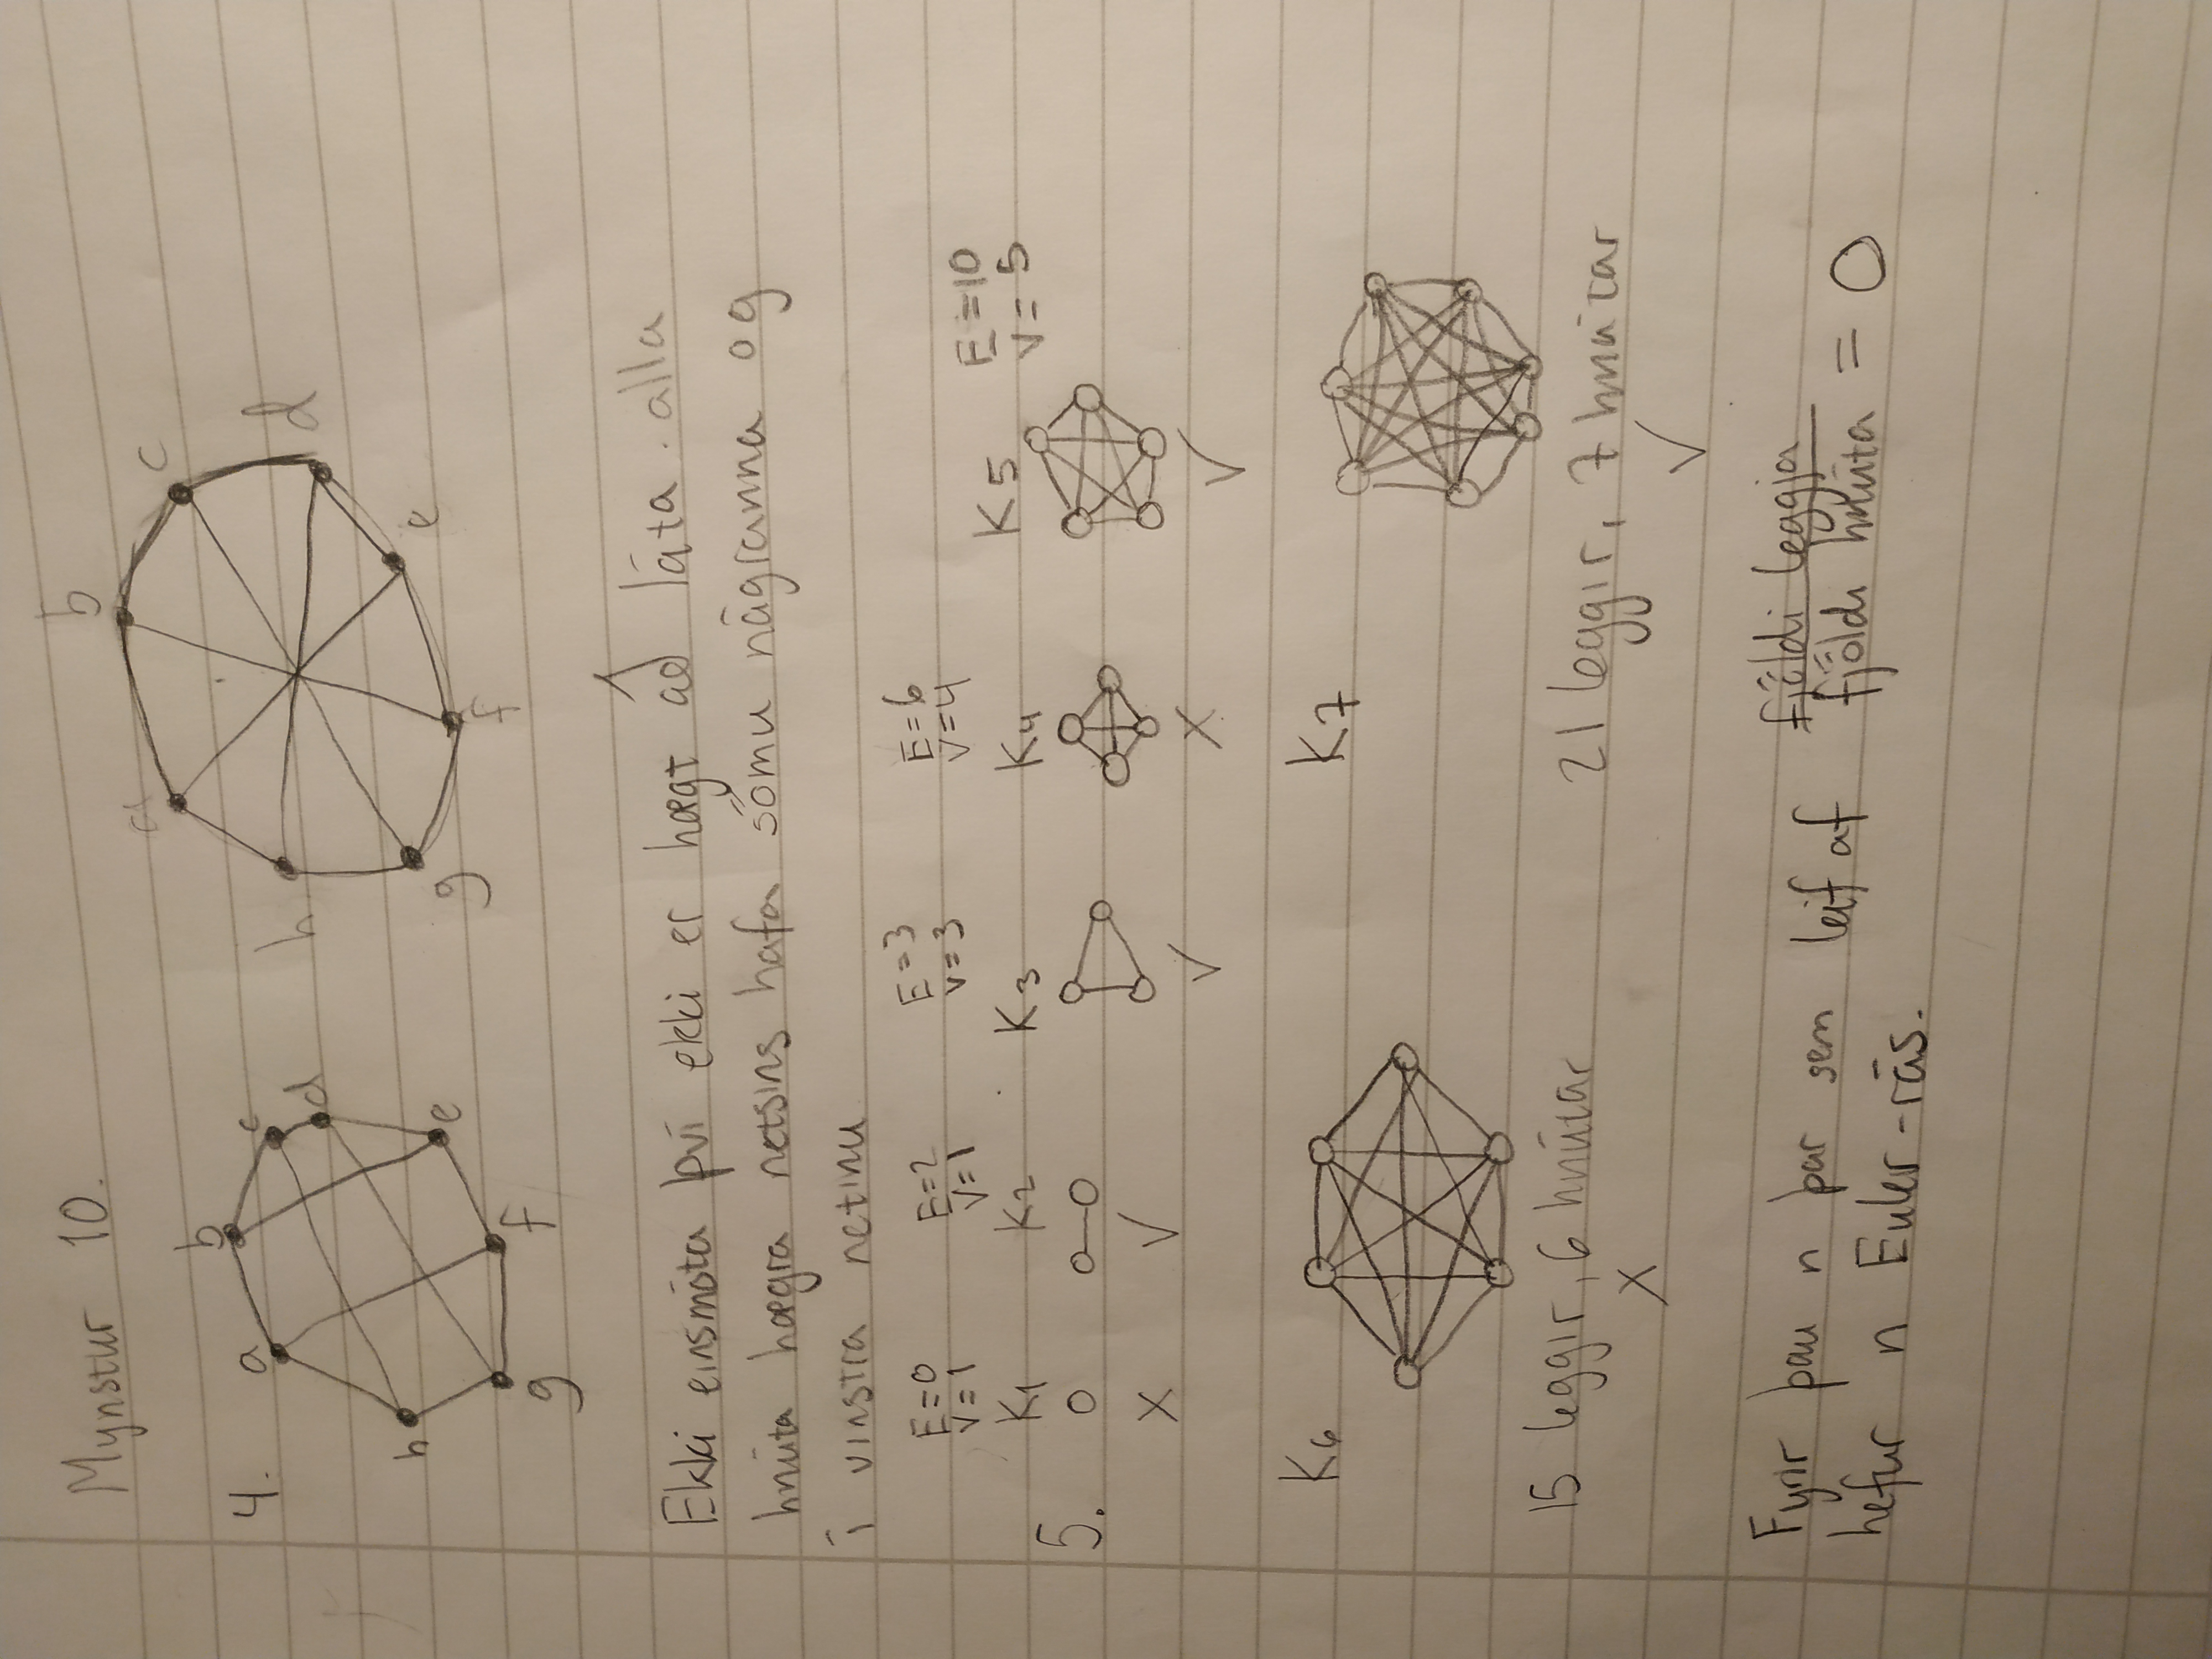 Mynstur 10.
4.
a b c d e f g h
a b c d e f g h
Ekki einsmóta því ekki er hægt að láta alla
hnúta hægra netsins hafa sömu nágranna og
í vinstra netinu
E=0 E=2 E=3 E=6
V=1 V=1 V=3 V=4
E=10
V=5
K1 K2 K3 K4 K5
5.
X ✓ ✓ X ✓
K6 K7
15 leggir, 6 hnútar 21 leggir, 7 hnútar
X ✓
Fyrir þau n þar sem leif af fjöldi leggja
fjöldi hnúta = 0
hefur n Euler-rás.